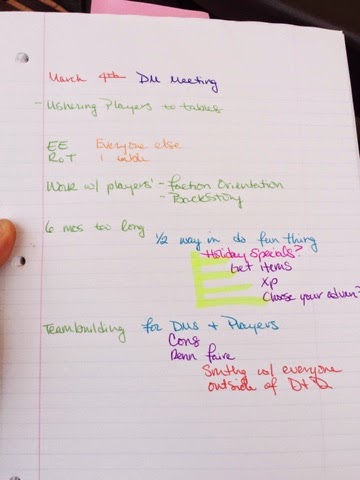 March 4th DM Meeting
- Ushering Players to tables
EE Everyone else
RoT 1 table
Work w/ players' - Faction Orientation
- Backstory
6 mos too long
1/2 way in do fun thing
Holiday Specials?
Get items
XP
Choose your advan
Teambuilding for DMs + Players
Cons
Renn Faire
Smthg w/ everyone
outside of D+D